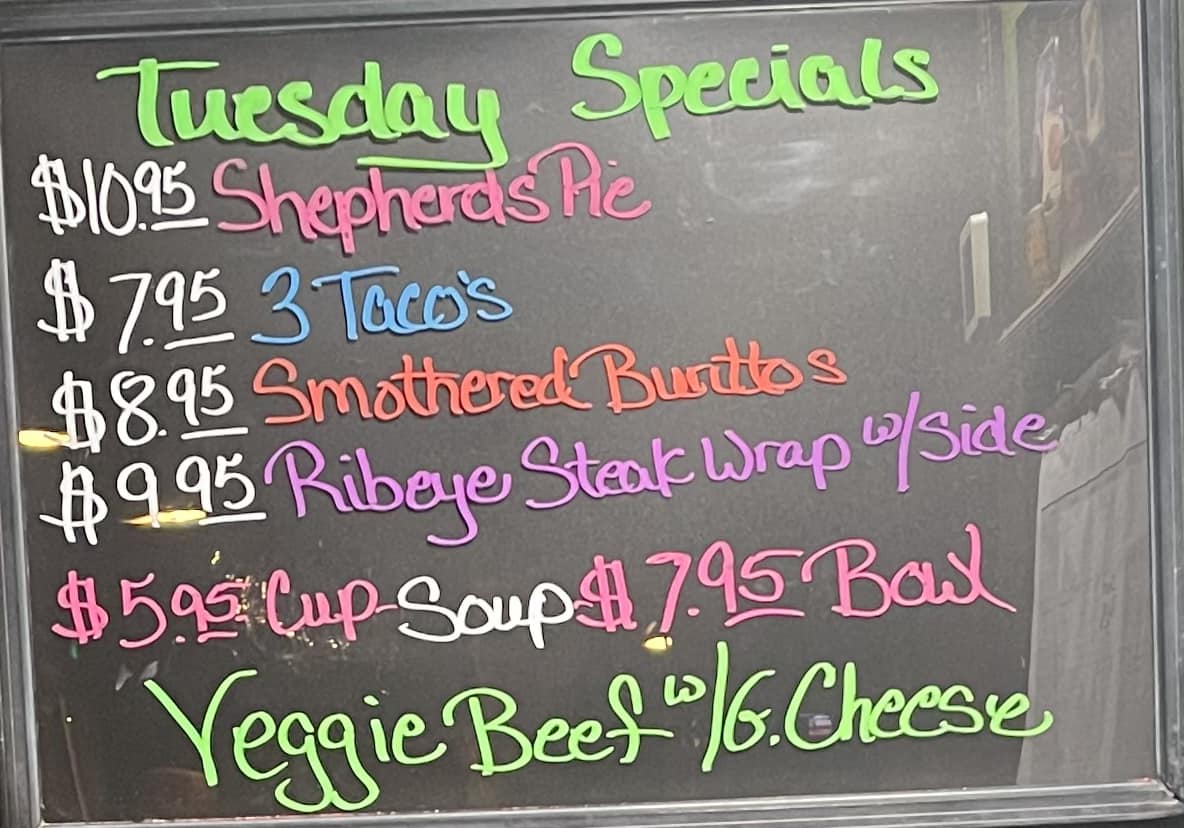 Tuesday Specials
$10.95 Shepherds Pie
$7.95 3 Taco's
$8.95 Smothered Burittos
$9.95 Ribeye Steak Wrap w/Side
$5.95 Cup-Soup-$7.95 Bowl
Veggie Beef w/G.Cheese